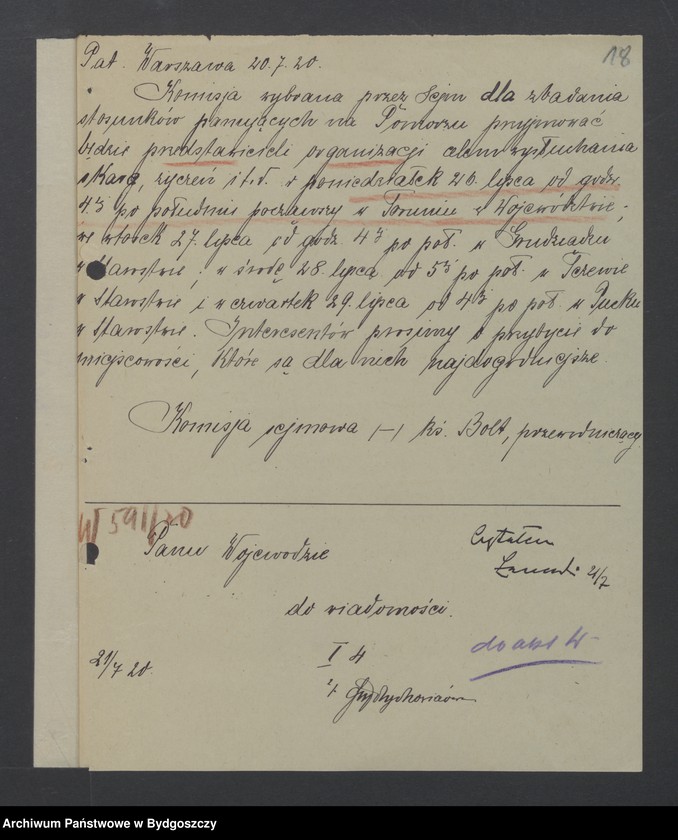 18
Pat. Warszawa 20.7.20.
Komisja wybrana przez Sejm dla zbadania
stosunków panujących na Pomorzu przyjmować
będzie przedstawicieli organizacji celem wysłuchania
skarg, życzeń i t.d. w poniedziałek 26. lipca od godz.
4 3/4 po południu począwszy w Toruniu w Województwie;
we wtorek 27. lipca od godz. 4 po poł. w Grudziądzu
w Starostwie; w środę 28. lipca od 5 po poł. w Tczewie
w Starostwie i w czwartek 29. lipca od 4 po poł. w Pucku
w Starostwie. Interesentów prosimy o przybycie do
miejscowości, które są dla nich najdogodniejsze.
Komisja sejmowa /-/ ks. Bolt, przewodniczący
W 591/20
Panu Wojewodzie
Czytałem
21/7
do wiadomości.
21/7 20
I 4
do akt W
Archiwum Państwowe w Bydgoszczy